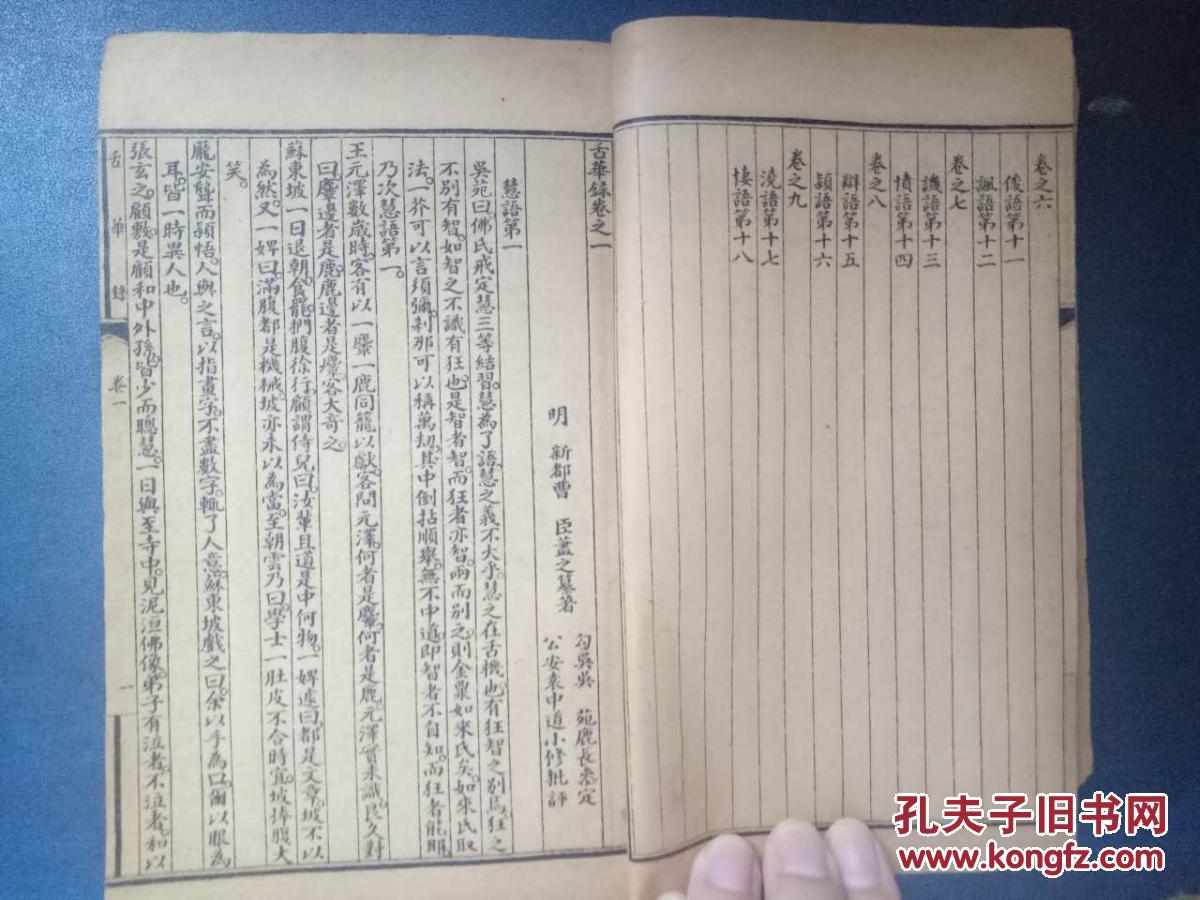 卷之六
俊語第十一
諷語第十二
卷之七
譏語第十三
憤語第十四
卷之八
辯語第十五
頴語第十六
卷之九
澆語第十七
悽語第十八
舌華錄卷之一
明 新都曹 臣藎之纂著
勾吳吳 苑鹿長叅定
公安袁中道小修批評
慧語第一
吳苑曰。佛氏戒定慧三等結習。慧為了語。慧之義不大乎。慧之在舌機也。有狂智之別焉。狂之
不別有智。如智之不識有狂也。是智者智。而狂者亦智。兩而別之。則金粟如來氏矣。如來氏取
法。一芥可以言須彌。刹那可以稱萬劫。其中倒拈順舉。無不中道。即智者不自知。而狂者能耶。
乃次慧語第一。
王元澤數歲時。客有以一麞一鹿同籠以獻。客問元澤。何者是麞。何者是鹿。元澤實未識。良久對
曰。麞邊者是鹿。鹿邊者是麞。客大奇之。
蘇東坡一日退朝。食罷。捫腹徐行。顧謂侍兒曰。汝輩且道是中何物。一婢遽曰。都是文章。坡不以
為然。又一婢曰。滿腹都是機械。坡亦未以為當。至朝雲乃曰。學士一肚皮不合時宜。坡捧腹大
笑。
龐安聾而頴悟。人與之言。以指畫字。不盡數字。輒了人意。蘇東坡戲之曰。余以手為口。爾以眼為
耳。皆一時異人也。
張玄之。顧敷。是顧和中外孫。皆少而聰慧。一日與至寺中。見泥洹佛像。弟子有泣者。不泣者。和以
舌華錄
卷一
一
孔夫子旧书网
www.kongfz.com